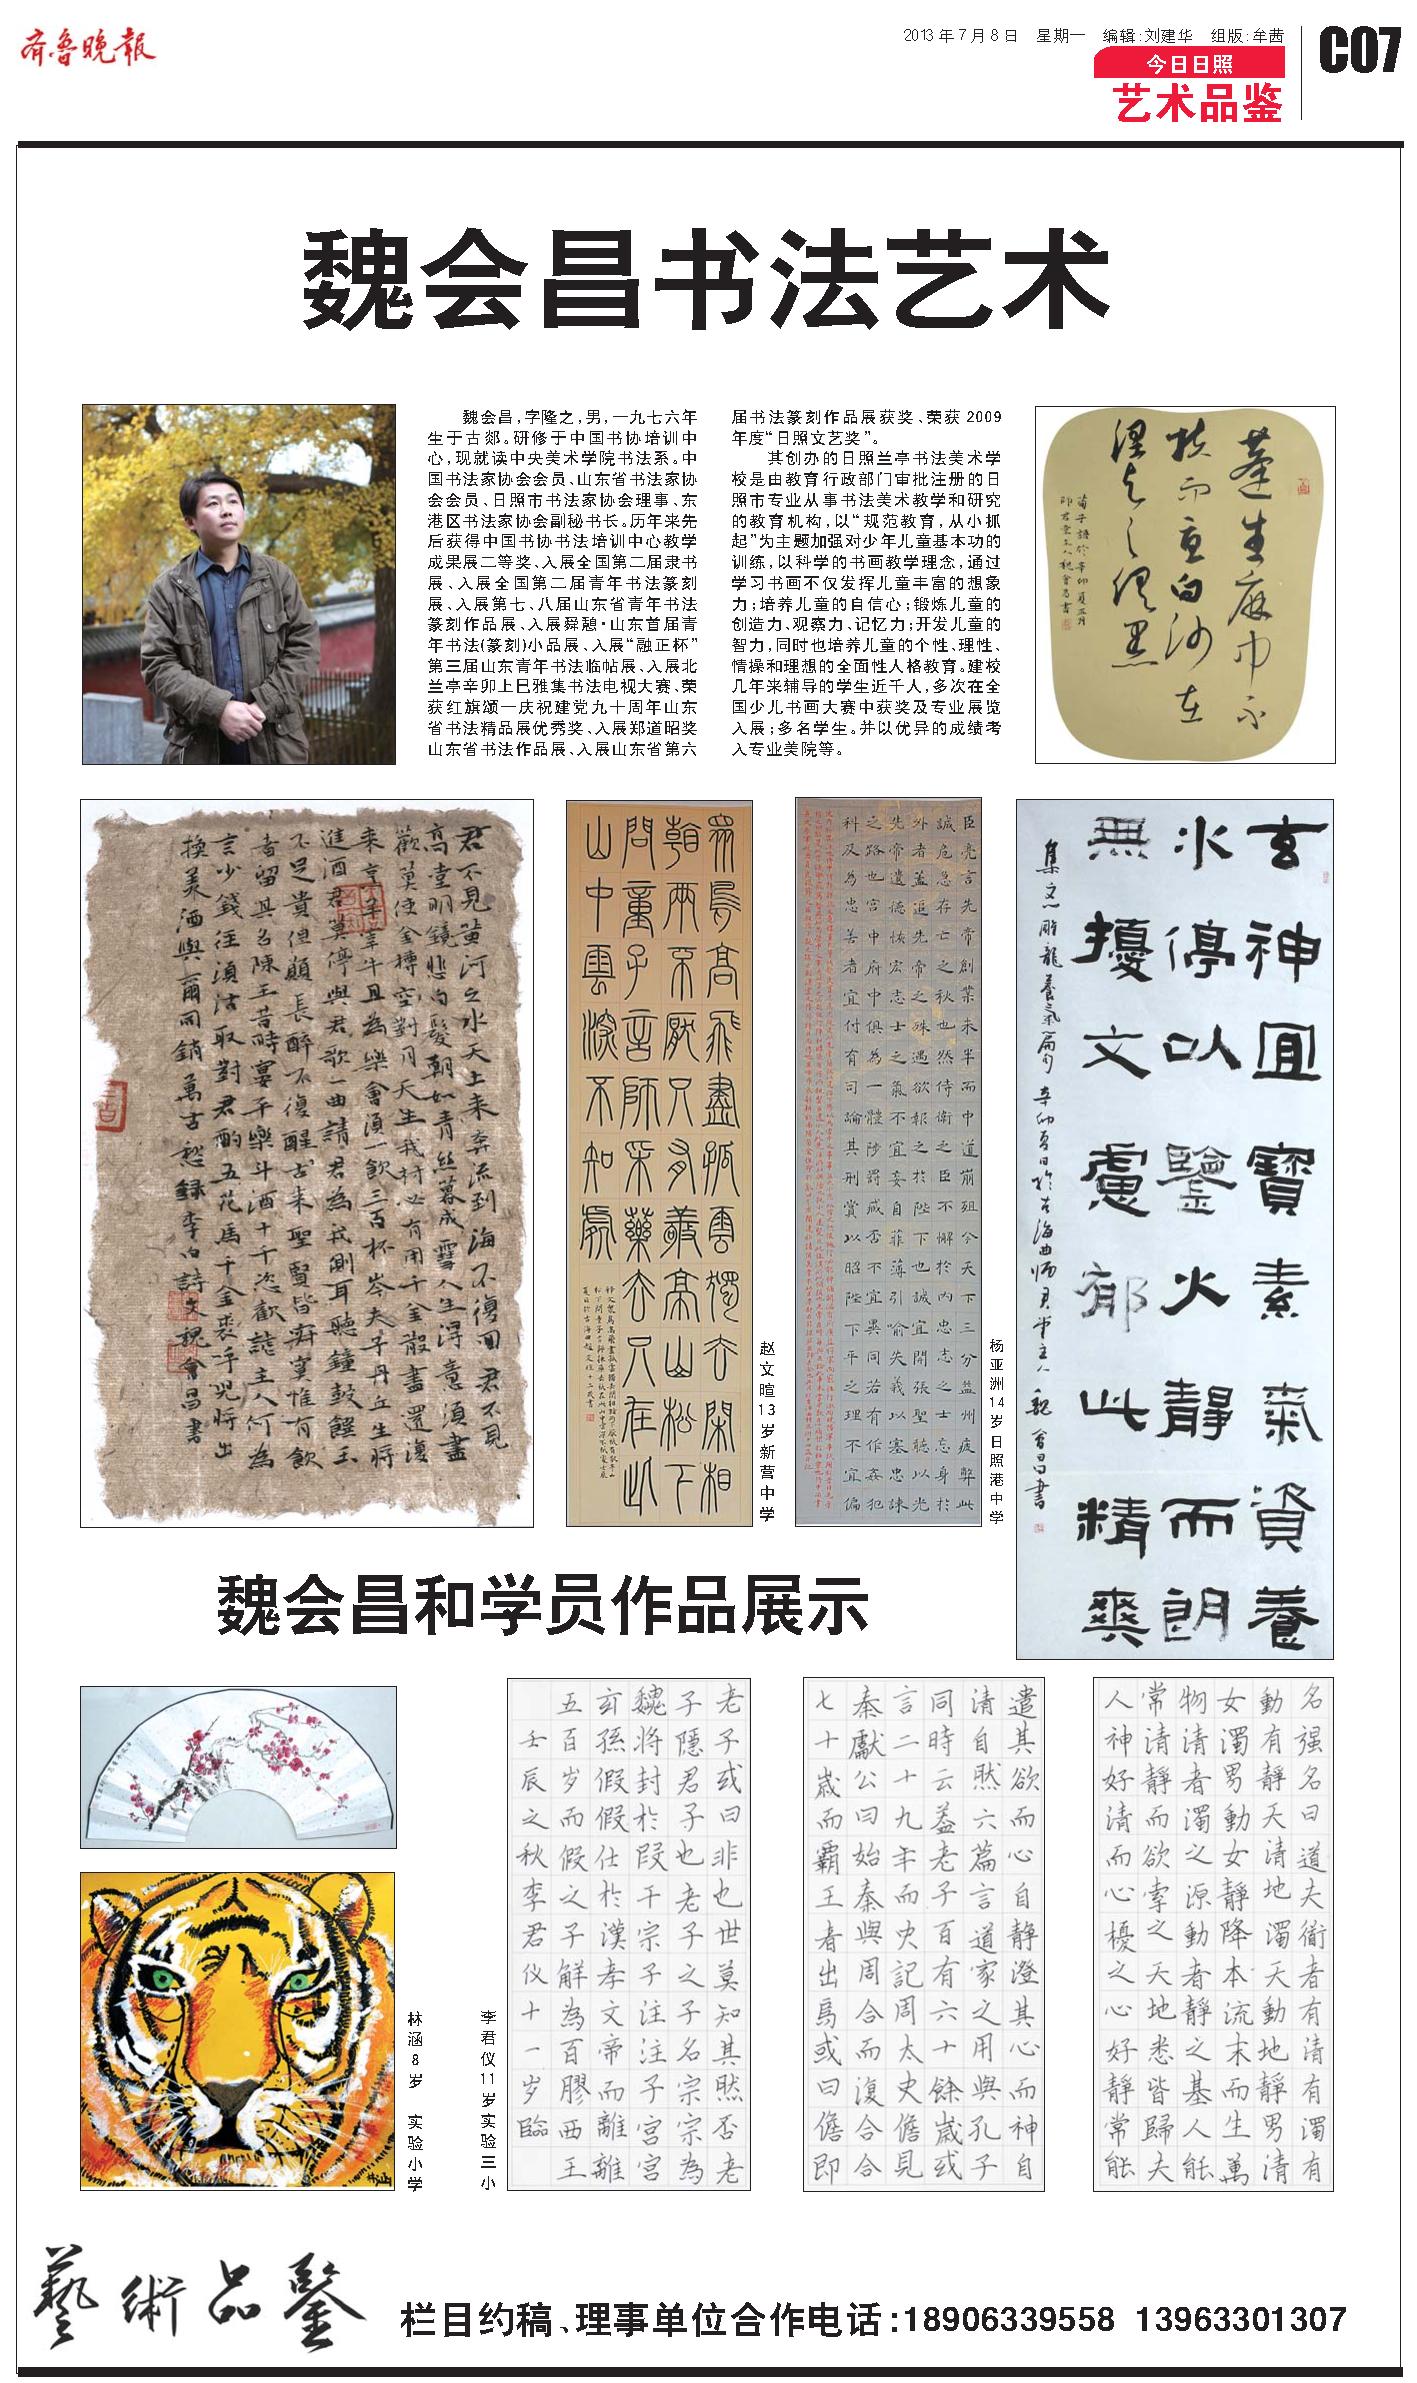 齐鲁晚报
2013年7月8日 星期一 编辑:刘建华 组版:牟茜
今日日照
艺术品鉴
C07
魏会昌书法艺术
魏会昌,字隆之,男,一九七六年
生于古郯。研修于中国书协培训中
心,现就读中央美术学院书法系。中
国书法家协会会员、山东省书法家协
会会员、日照市书法家协会理事、东
港区书法家协会副秘书长。历年来先
后获得中国书协书法培训中心教学
成果展二等奖、入展全国第二届隶书
展、入展全国第二届青年书法篆刻
展、入展第七、八届山东省青年书法
篆刻作品展、入展·山东首届青
年书法(篆刻)小品展、入展“融正杯”
第三届山东青年书法临帖展、入展北
兰亭辛卯上巳雅集书法电视大赛、荣
获红旗颂—庆祝建党九十周年山东
省书法精品展优秀奖、入展郑道昭奖
山东省书法作品展、入展山东省第六
届书法篆刻作品展获奖、荣获2009
年度“日照文艺奖”。
其创办的日照兰亭书法美术学
校是由教育行政部门审批注册的日
照市专业从事书法美术教学和研究
的教育机构,以“规范教育,从小抓
起”为主题加强对少年儿童基本功的
训练,以科学的书画教学理念,通过
学习书画不仅发挥儿童丰富的想象
力;培养儿童的自信心;锻炼儿童的
创造力、观察力、记忆力;开发儿童的
智力,同时也培养儿童的个性、理性、
情操和理想的全面性人格教育。建校
几年来辅导的学生近千人,多次在全
国少儿书画大赛中获奖及专业展览
入展;多名学生。并以优异的成绩考
入专业美院等。
蓬生麻中不
扶而直白沙在
涅与之俱黑
荀子语於辛卯夏五月
魏會昌書
君不見黃河之水天上来奔流到海不復回君不見
高堂明鏡悲白髮朝如青絲暮成雪人生得意須盡
歡莫使金樽空對月天生我材必有用千金散盡還復
来烹羊宰牛且為樂會須一飲三百杯岑夫子丹丘生將
進酒君莫停與君歌一曲請君為我側耳聽鐘鼓饌玉
不足貴但願長醉不復醒古来聖賢皆寂寞惟有飲
者留其名陳王昔時宴平樂斗酒十千恣歡謔主人何為
言少錢徑須沽取對君酌五花馬千金裘呼兒將出
換美酒與爾同銷萬古愁録李白詩文魏會昌書
眾鳥高飛盡孤雲獨去閑相
看兩不厭只有敬亭山松下
問童子言師采藥去只在此
山中雲深不知處
赵文暄13岁新营中学
臣亮言先帝創業未半而中道崩殂今天下三分益州疲弊此
誠危急存亡之秋也然侍衛之臣不懈於內忠志之士忘身於
外者蓋追先帝之殊遇欲報之於陛下也誠宜開張聖聽以光
先帝遺德恢宏志士之氣不宜妄自菲薄引喻失義以塞忠諫
之路也宮中府中俱為一體陟罰臧否不宜異同若有作姦犯
科及為忠善者宜付有司論其刑賞以昭陛下平之理不宜偏
杨亚洲14岁日照港中学
玄神宜寶素氣資養
水停以鑒火靜而朗
無擾文慮郁此精爽
集文心雕龍養氣篇句 辛卯夏日於古海曲 魏會昌書
魏会昌和学员作品展示
林涵8岁 实验小学
李君仪11岁实验三小
老子或曰非也世莫知其然否老
子隱君子也老子之子名宗宗為
魏將封於段干宗子注注子宮宮
玄孫假假仕於漢孝文帝而離離
五百岁而假之子解為百膠西王
壬辰之秋李君仪十一岁臨
遣其欲而心自靜澄其心而神自
清自然六篇言道家之用與孔子
同時云蓋老子百有六十餘歲或
言二十九年而史記周太史儋見
秦獻公曰始秦與周合而復合合
七十歲而霸王者出焉或曰儋即
名强名曰道夫衜者有清有濁有
動有靜天清地濁天動地靜男清
女濁男動女靜降本流末而生萬
物清者濁之源動者靜之基人能
常清靜而欲牽之天地悉皆歸夫
人神好清而心擾之心好靜常能
藝術品鑒
栏目约稿、理事单位合作电话:18906339558 13963301307